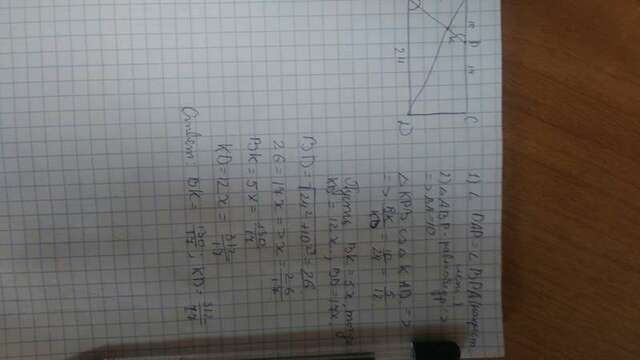 1) ∠ DAP = ∠ BPA (накрест
лежащ.)
2) △ABP - равнобедр =>
=> BA = 10
△KPB ~ △AKD =>
=> BK/KD = 10/24 = 5/12
Пусть BK = 5x, тогда
KD = 12x, BD = 17x.
BD = √24² + 10² = 26
26 = 17x => x = 26/17
BK = 5x = 130/17
KD = 12x = 312/17
Ответ: BK = 130/17; KD = 312/17
D
C
24
P
14
10